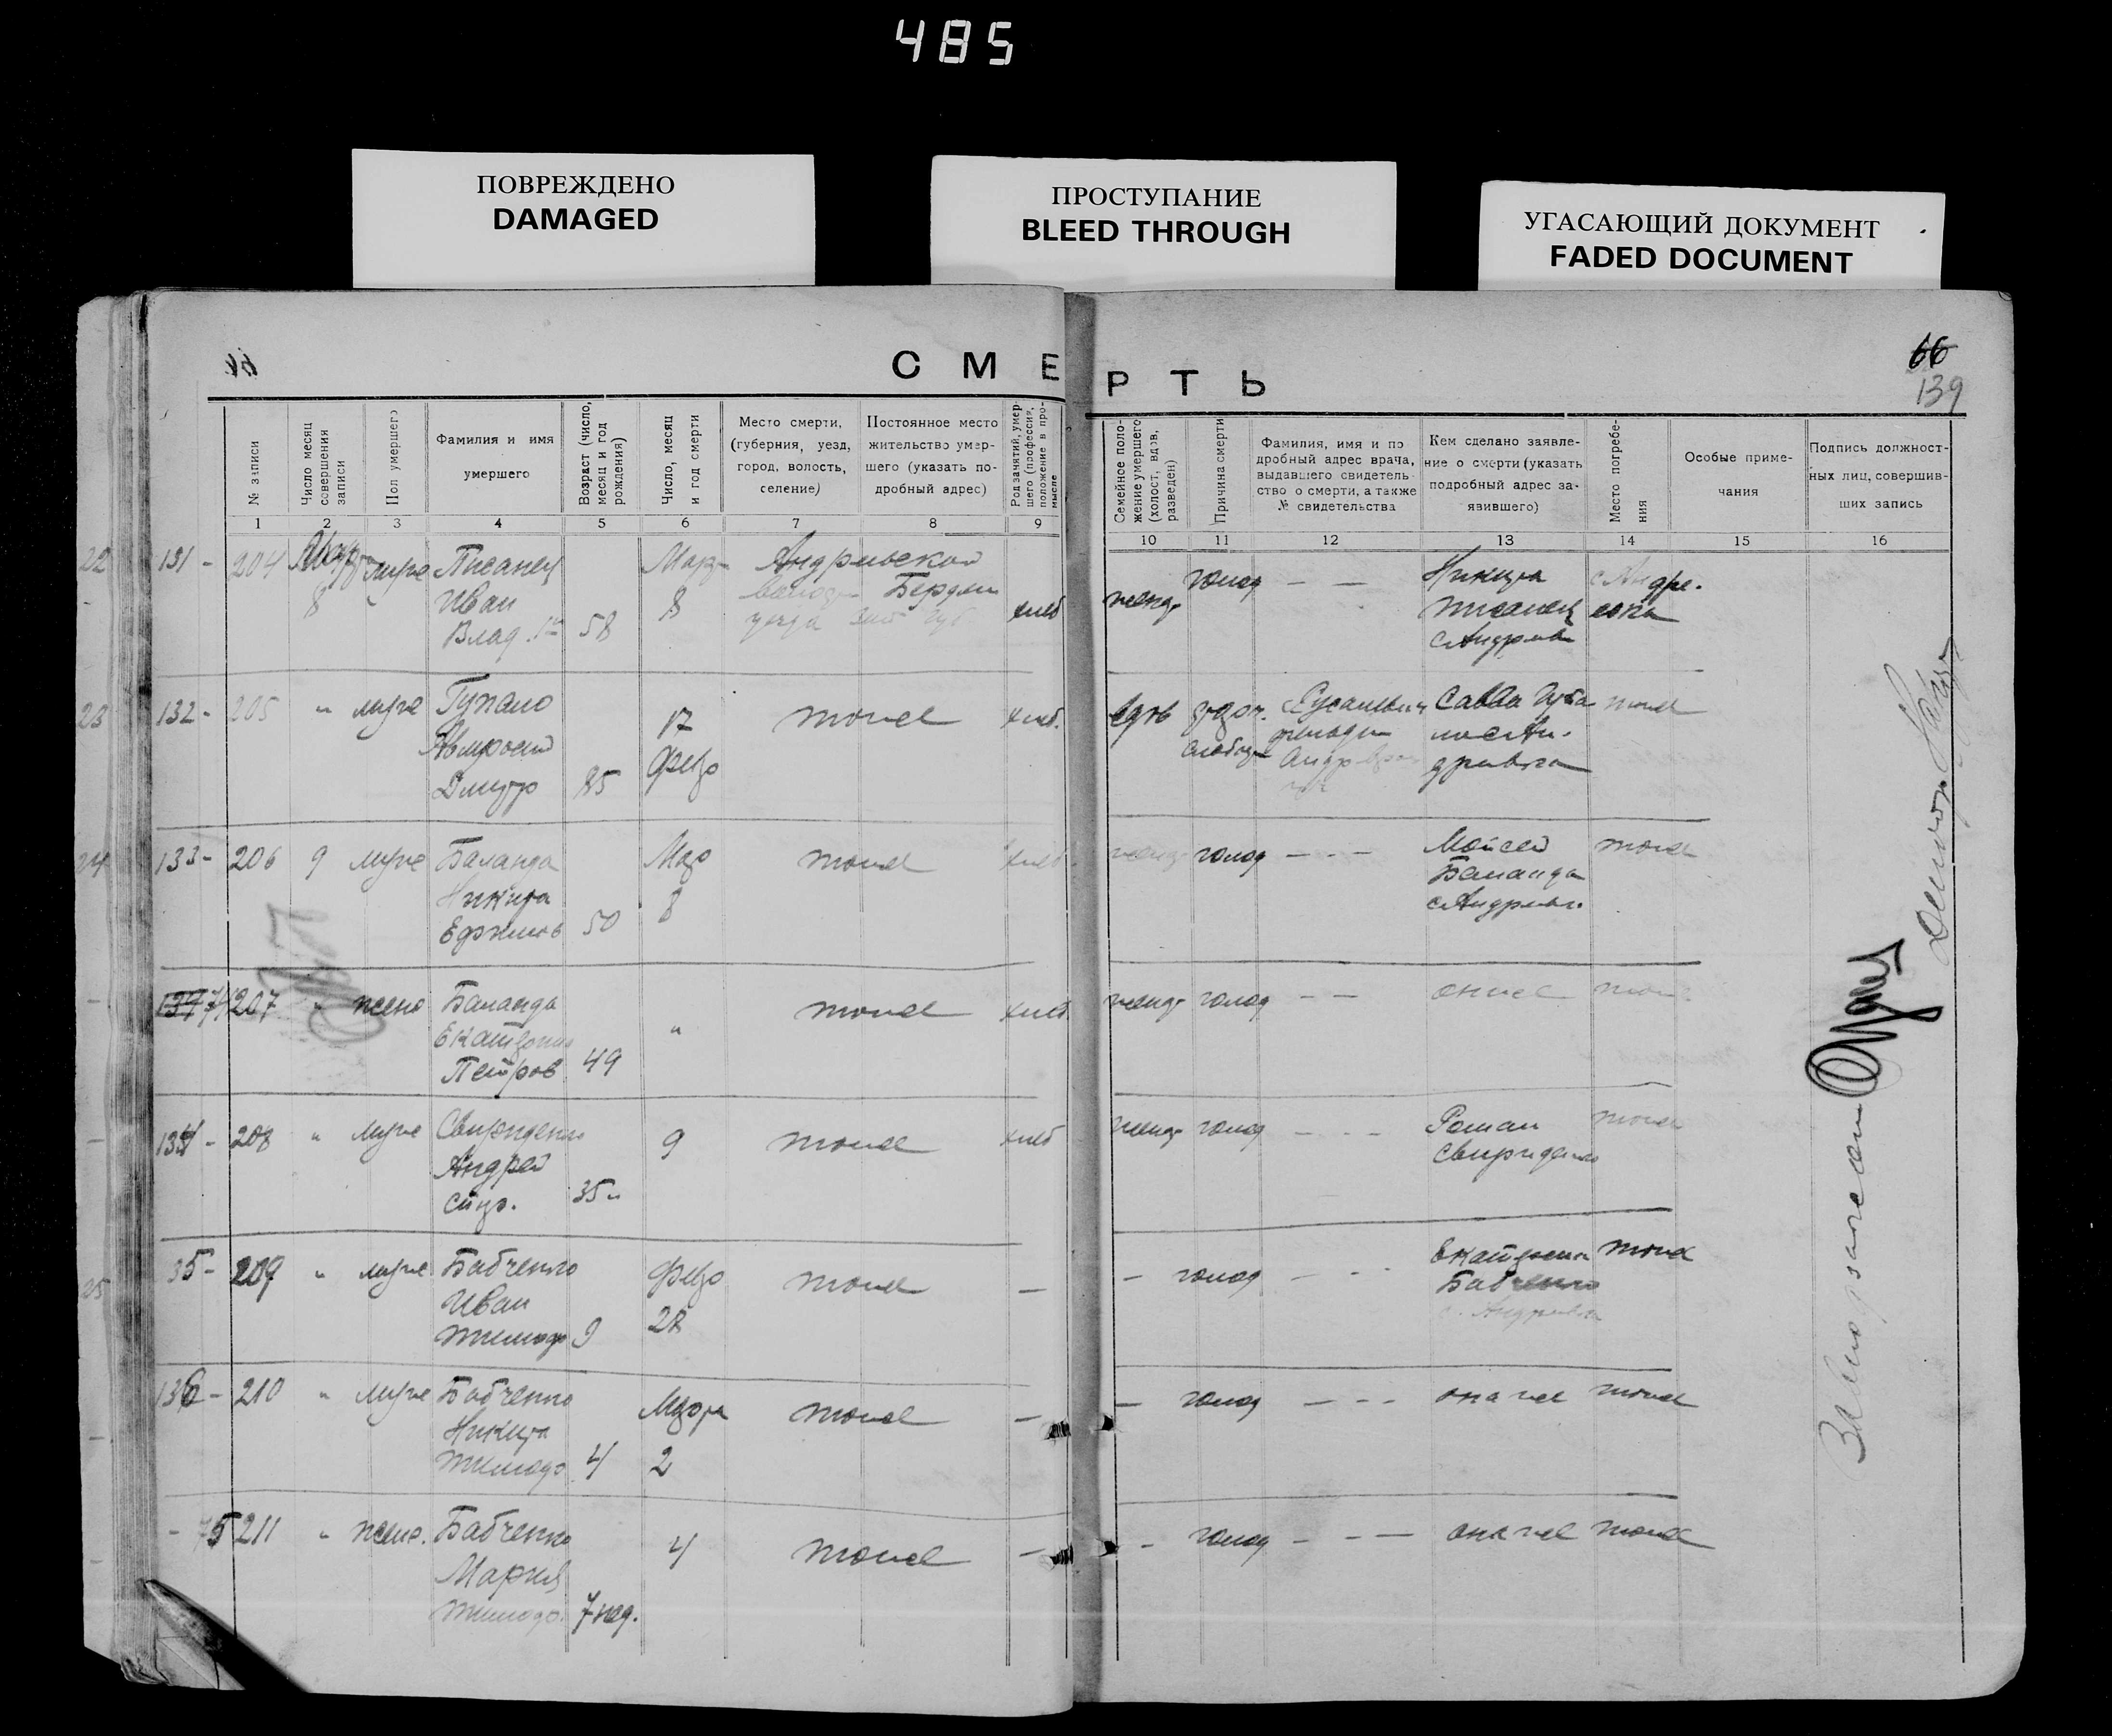 485
ПОВРЕЖДЕНО
DAMAGED
ПРОСТУПАНИЕ
BLEED THROUGH
УГАСАЮЩИЙ ДОКУМЕНТ
FADED DOCUMENT
66
139
СМЕРТЬ
№ записи
Число месяц
совершения
записи
Пол умершего
Фамилия и имя
умершего
Возраст (число,
месяц и год
рождения)
Число, месяц
и год смерти
Место смерти,
(губерния, уезд,
город, волость,
селение)
Постоянное место
жительство умер-
шего (указать по-
дробный адрес)
Род занятий, умер-
шего (профессия,
положение в про-
мысле
Семейное поло-
жение умершего
(холост, вдов,
разведен)
Причина смерти
Фамилия, имя и по
дробный адрес врача,
выдавшего свидетель-
ство о смерти, а также
№ свидетельства
Кем сделано заявле-
ние о смерти (указать
подробный адрес за-
явившего)
Место погребе-
ния
Особые приме-
чания
Подпись должност-
ных лиц, совершив-
ших запись
1 2 3 4 5 6 7 8 9 10 11 12 13 14 15 16
22 131 - 204 8 муже Писанец Иван Влад. 58 Март 8 Андреевской Бердян уезда хлеб женат голод — — Никита Писанец с Андреев с Андре-
евка
23 132 - 205 " муже Дмитр 85 17 Февр тоже хлеб. вдов Савва тоже
24 133 - 206 9 муже Баланда Никита Ефимов 50 Мар 8 тоже хлеб женат голод — - — Мойсей Баланда с Андреев. тоже
207 " женс Баланда Екатерина Петров 49 " тоже хлеб. женат голод — — он же тоже
134 - 208 " муже Свириденко Андрей 35 9 тоже хлеб женат голод — - - Роман Свириденко тоже
25 35 - 209 " муже Бабченко Иван Тимоф 9 Февр 28 тоже — - голод — - - Екатерина Бабченко с. Андреевка тоже
136 - 210 " муже Бабченко Никита Тимоф 4 Марта 2 тоже — — голод — - - она же тоже
- 75 211 " женс. Бабченко Мария Тимоф. 7 нед. 4 тоже — - голод - - — она же тоже